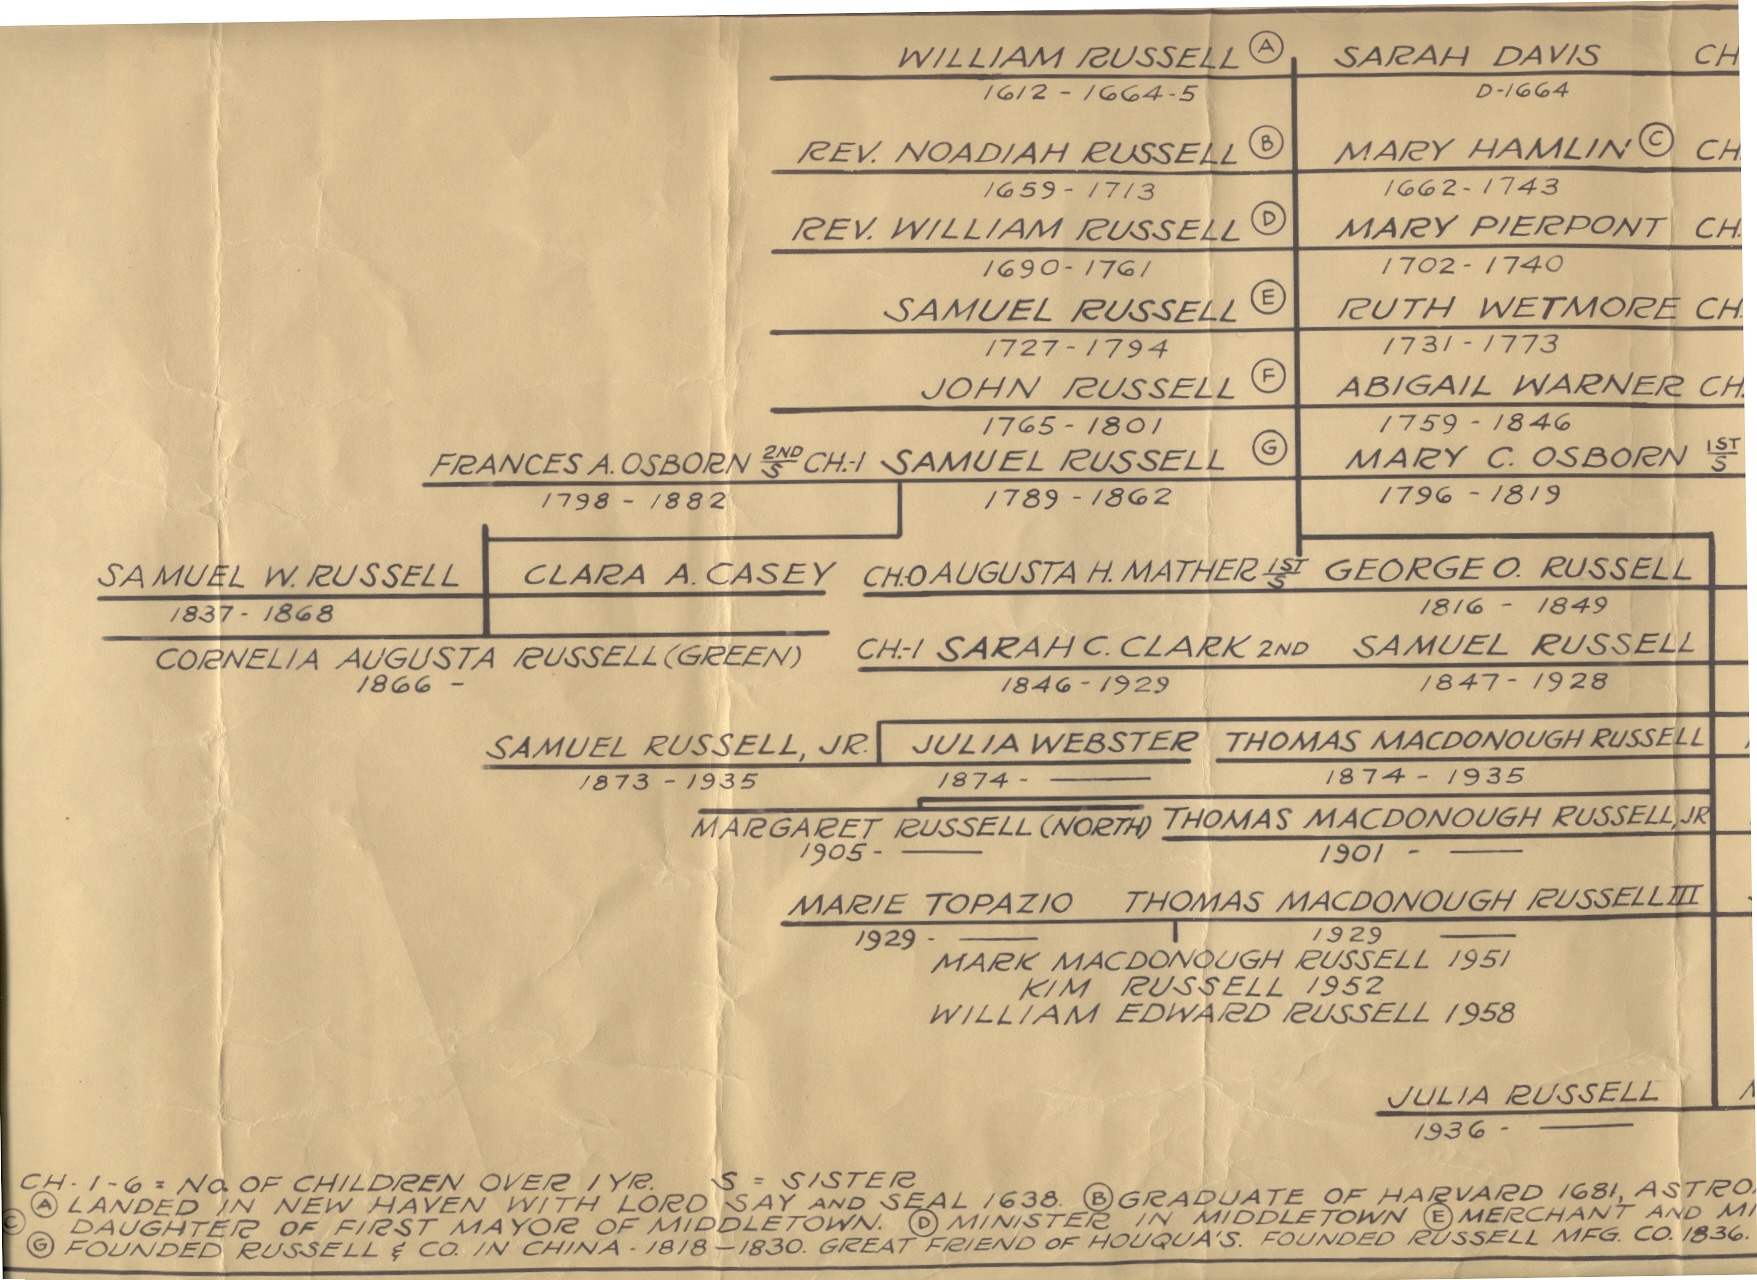 WILLIAM RUSSELL Ⓐ SARAH DAVIS CH
1612 - 1664-5 D-1664
REV. NOADIAH RUSSELL Ⓑ MARY HAMLIN Ⓒ CH.
1659 - 1713 1662 - 1743
REV. WILLIAM RUSSELL Ⓓ MARY PIERPONT CH.
1690 - 1761 1702 - 1740
SAMUEL RUSSELL Ⓔ RUTH WETMORE CH.
1727 - 1794 1731 - 1773
JOHN RUSSELL Ⓕ ABIGAIL WARNER CH.
1765 - 1801 1759 - 1846
FRANCES A. OSBORN 2ND S CH.-1 SAMUEL RUSSELL Ⓖ MARY C. OSBORN 1ST S
1798 - 1882 1789 - 1862 1796 - 1819
SAMUEL W. RUSSELL CLARA A. CASEY CH.O AUGUSTA H. MATHER 1ST S GEORGE O. RUSSELL
1837 - 1868 1816 - 1849
CORNELIA AUGUSTA RUSSELL (GREEN) CH.-1 SARAH C. CLARK 2ND SAMUEL RUSSELL
1866 - 1846 - 1929 1847 - 1928
SAMUEL RUSSELL, JR. JULIA WEBSTER THOMAS MACDONOUGH RUSSELL
1873 - 1935 1874 - 1874 - 1935
MARGARET RUSSELL (NORTH) THOMAS MACDONOUGH RUSSELL, JR
1905 - 1901 -
MARIE TOPAZIO THOMAS MACDONOUGH RUSSELL III
1929 - 1929
MARK MACDONOUGH RUSSELL 1951
KIM RUSSELL 1952
WILLIAM EDWARD RUSSELL 1958
JULIA RUSSELL
1936 -
CH. 1-6 = NO. OF CHILDREN OVER 1 YR. S = SISTER
Ⓐ LANDED IN NEW HAVEN WITH LORD SAY AND SEAL 1638. Ⓑ GRADUATE OF HARVARD 1681, ASTRO
Ⓒ DAUGHTER OF FIRST MAYOR OF MIDDLETOWN. Ⓓ MINISTER IN MIDDLETOWN Ⓔ MERCHANT AND MI
Ⓖ FOUNDED RUSSELL & CO. IN CHINA - 1818-1830. GREAT FRIEND OF HOUQUA'S. FOUNDED RUSSELL MFG. CO. 1836.